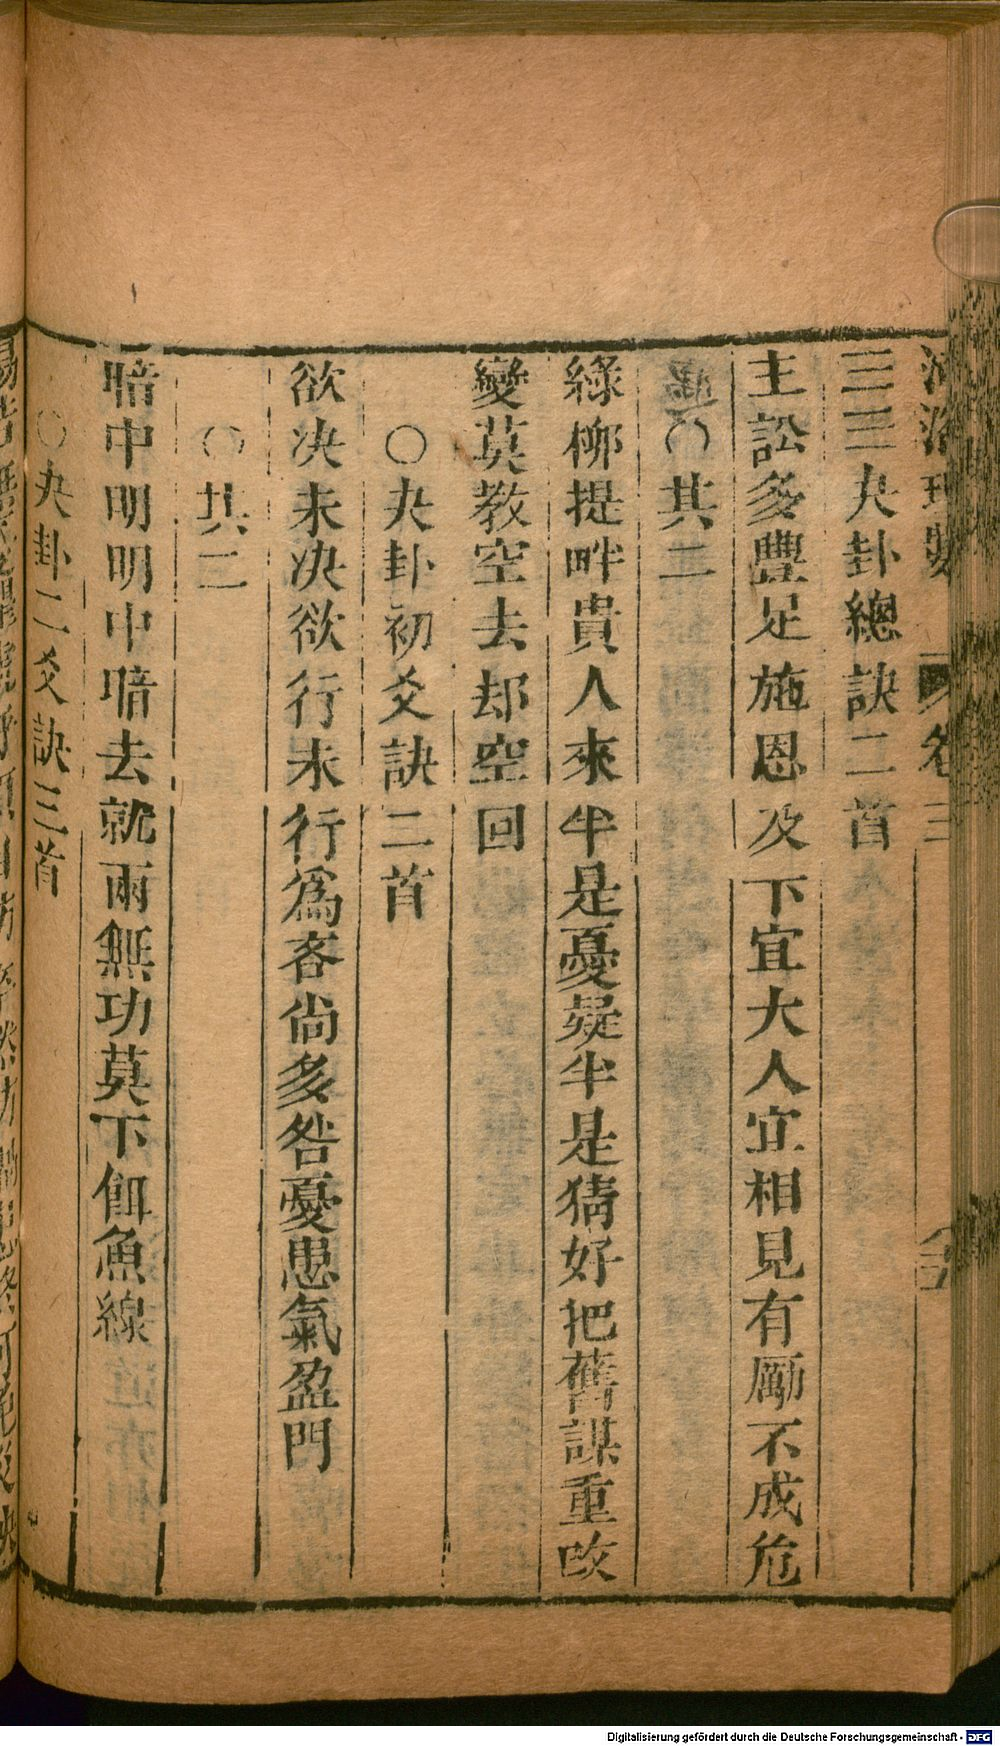 河洛理數 卷三
三三夬卦總訣二首
主訟多豐足施恩及下宜大人宜相見有勵不成危
○其二
綠柳提畔貴人來半是憂疑半是猜好把舊謀重改
變莫教空去却空回
○夬卦初爻訣二首
欲决未决欲行未行爲客尚多咎憂思氣盈門
○其二
暗中明明中暗去就兩無功莫下餌魚線
○夬卦二爻訣三首
Digitalisierung gefördert durch die Deutsche Forschungsgemeinschaft - DFG